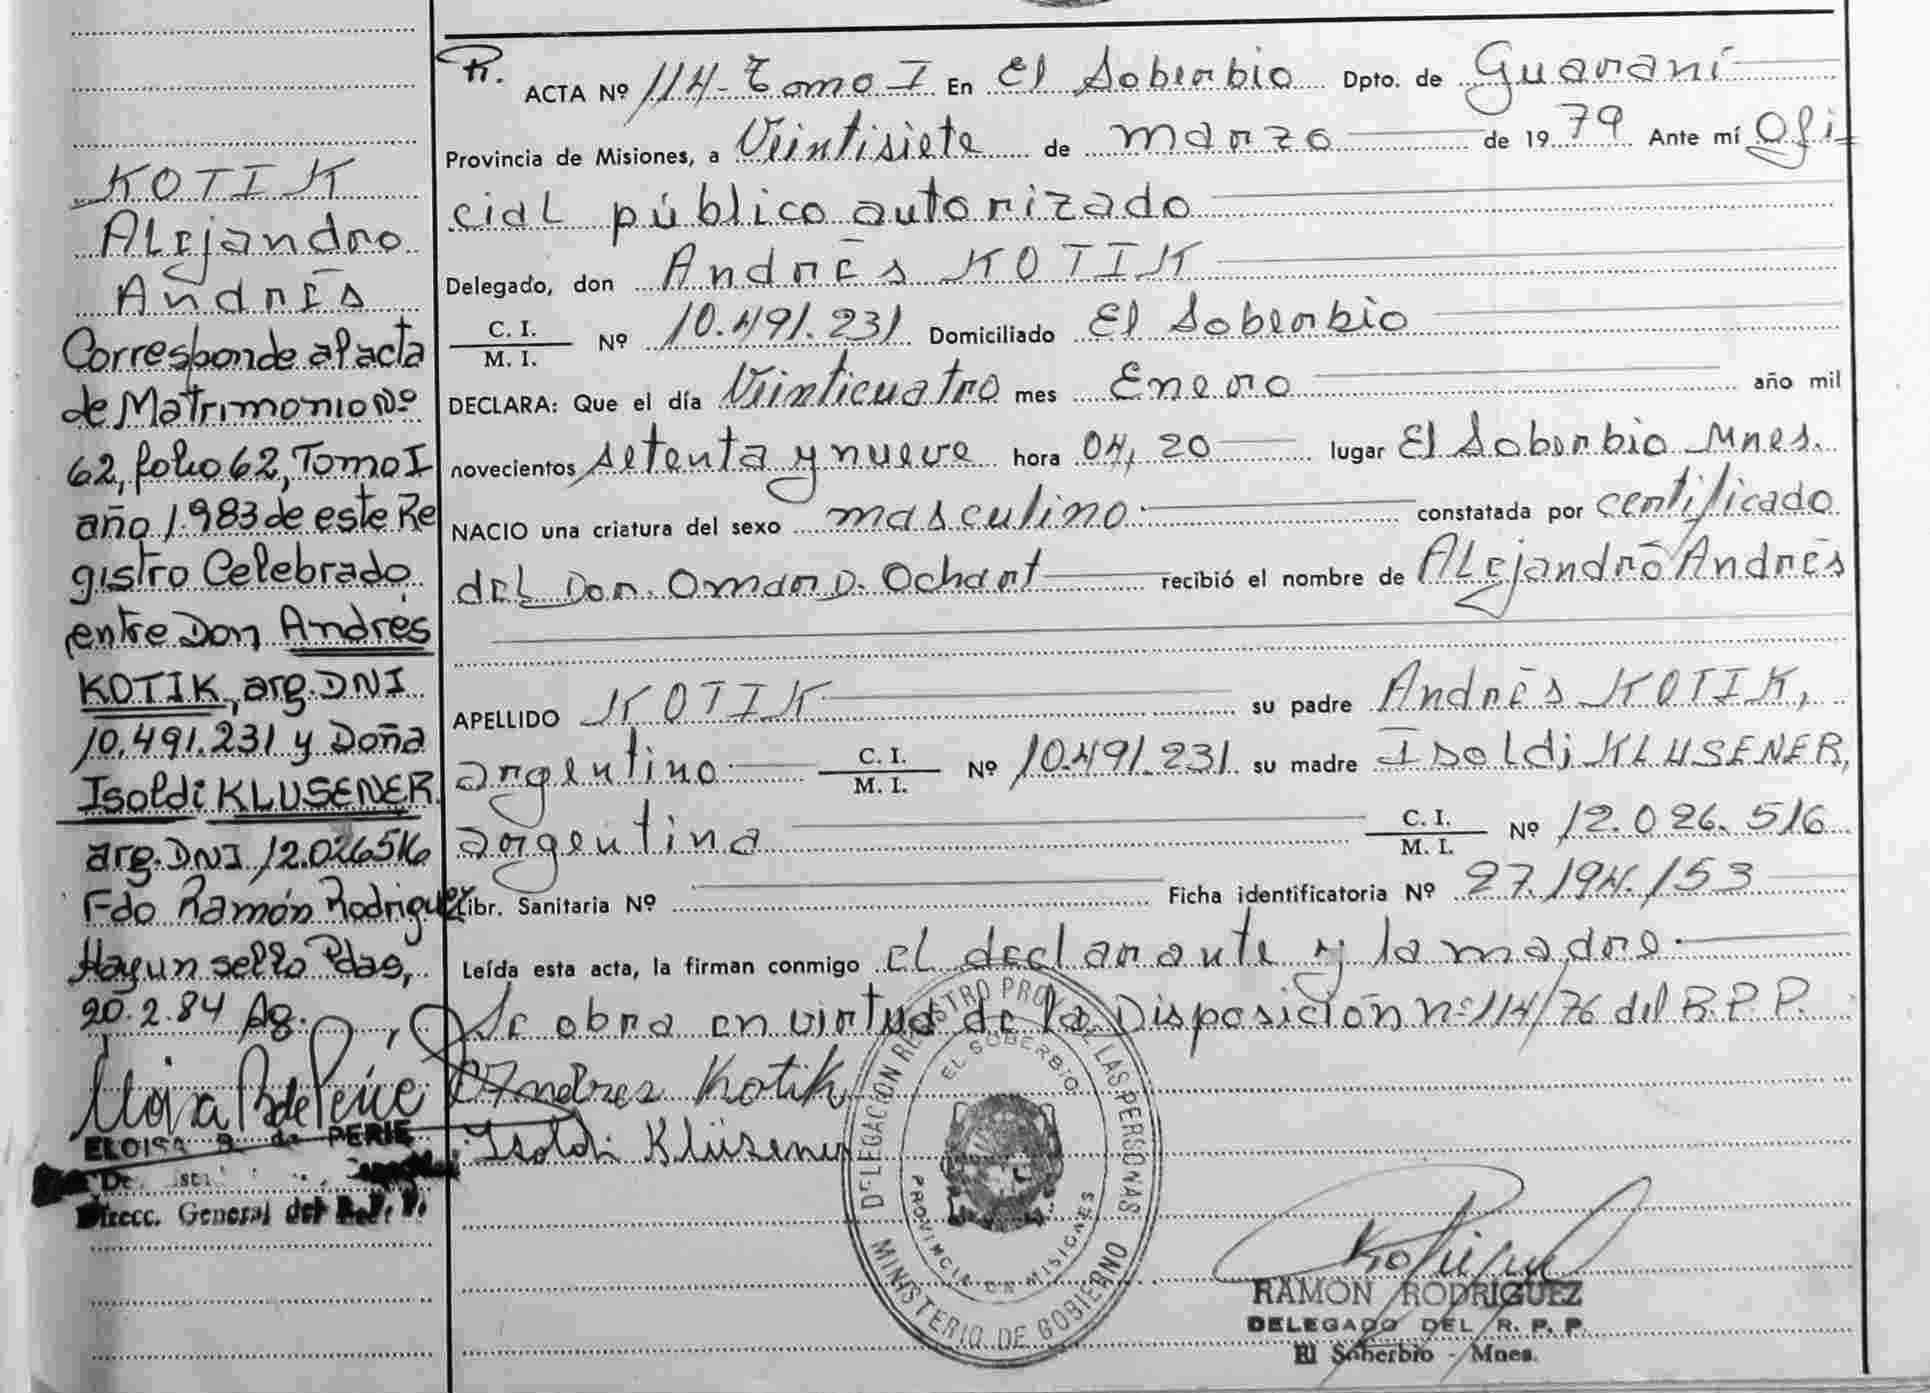 KOTIK
Alejandro
Andrés
Corresponde al acta
de Matrimonio Nº
62, folio 62, Tomo I
año 1.983 de este Re
gistro Celebrado
entre Don Andrés
KOTIK, arg. DNI
10.491.231 y Doña
Isoldi KLUSENER
arg. DNI 12.026516
Fdo Ramón Rodriguez
Hay un sello Pdas,
20.2.84 Ag.
ELOISA de PERIE
Direcc. General del R.P.P.
ACTA Nº 114- Tomo I En El Soberbio Dpto. de Guaraní
Provincia de Misiones, a Veintisiete de marzo de 1979 Ante mí Ofi-
cial público autorizado
Delegado, don Andrés KOTIK
C. I. / M. I. Nº 10.491.231 Domiciliado El Soberbio
DECLARA: Que el día Veinticuatro mes Enero año mil
novecientos setenta y nueve hora 04,20 lugar El Soberbio Mnes.
NACIO una criatura del sexo masculino constatada por certificado
del Dor. Omar D. Ochart recibió el nombre de Alejandro Andrés
APELLIDO KOTIK su padre Andrés KOTIK,
argentino C. I. / M. I. Nº 10.491.231 su madre Isoldi KLUSENER,
argentina C. I. / M. I. Nº 12.026.516
Libr. Sanitaria Nº Ficha identificatoria Nº 27.194.153
Leída esta acta, la firman conmigo el declarante y la madre.
Se obra en virtud de la Disposición nº 114/76 del R.P.P.
Andres Kotik
Isoldi Klüsener
DELEGACION REGISTRO PROV. DE LAS PERSONAS
EL SOBERBIO
PROVINCIA DE MISIONES
MINISTERIO DE GOBIERNO
RAMON RODRIGUEZ
DELEGADO DEL R. P. P.
El Soberbio - Mnes.